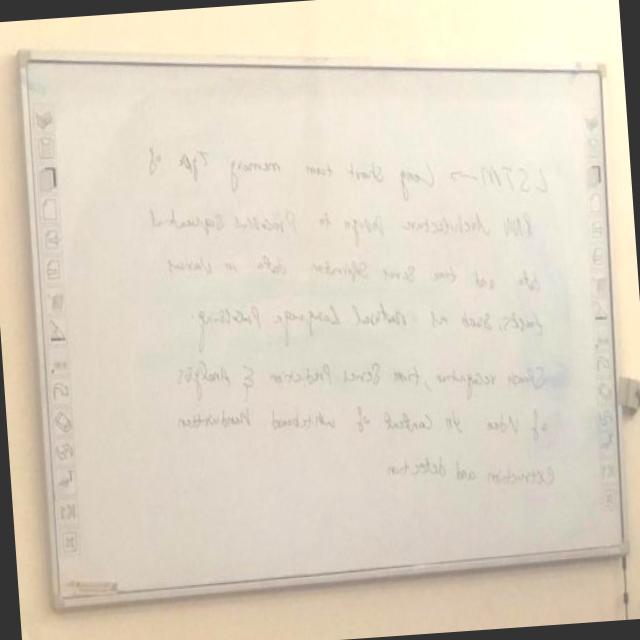 LSTM → Long short term memory Type of
RNN Architecture Design to Process Sequential
data and time Series Information data in various
tasks, such as Natural Language Processing
recognition, time Series Prediction & Analysis
of video In Context of whiteboard Handwritten
extraction and detection